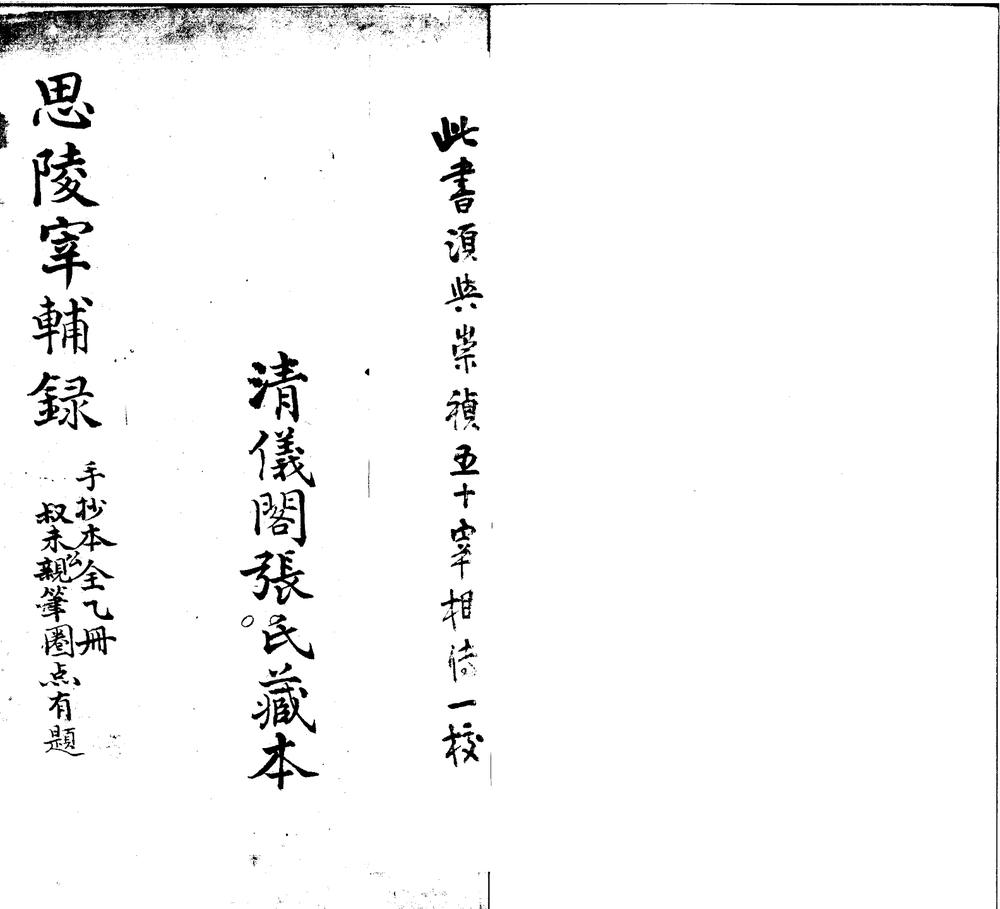 此書須與崇禎五十宰相傳一校
清儀閣張氏藏本
思陵宰輔録
手抄本全乙冊
叔未公親筆圈点有題